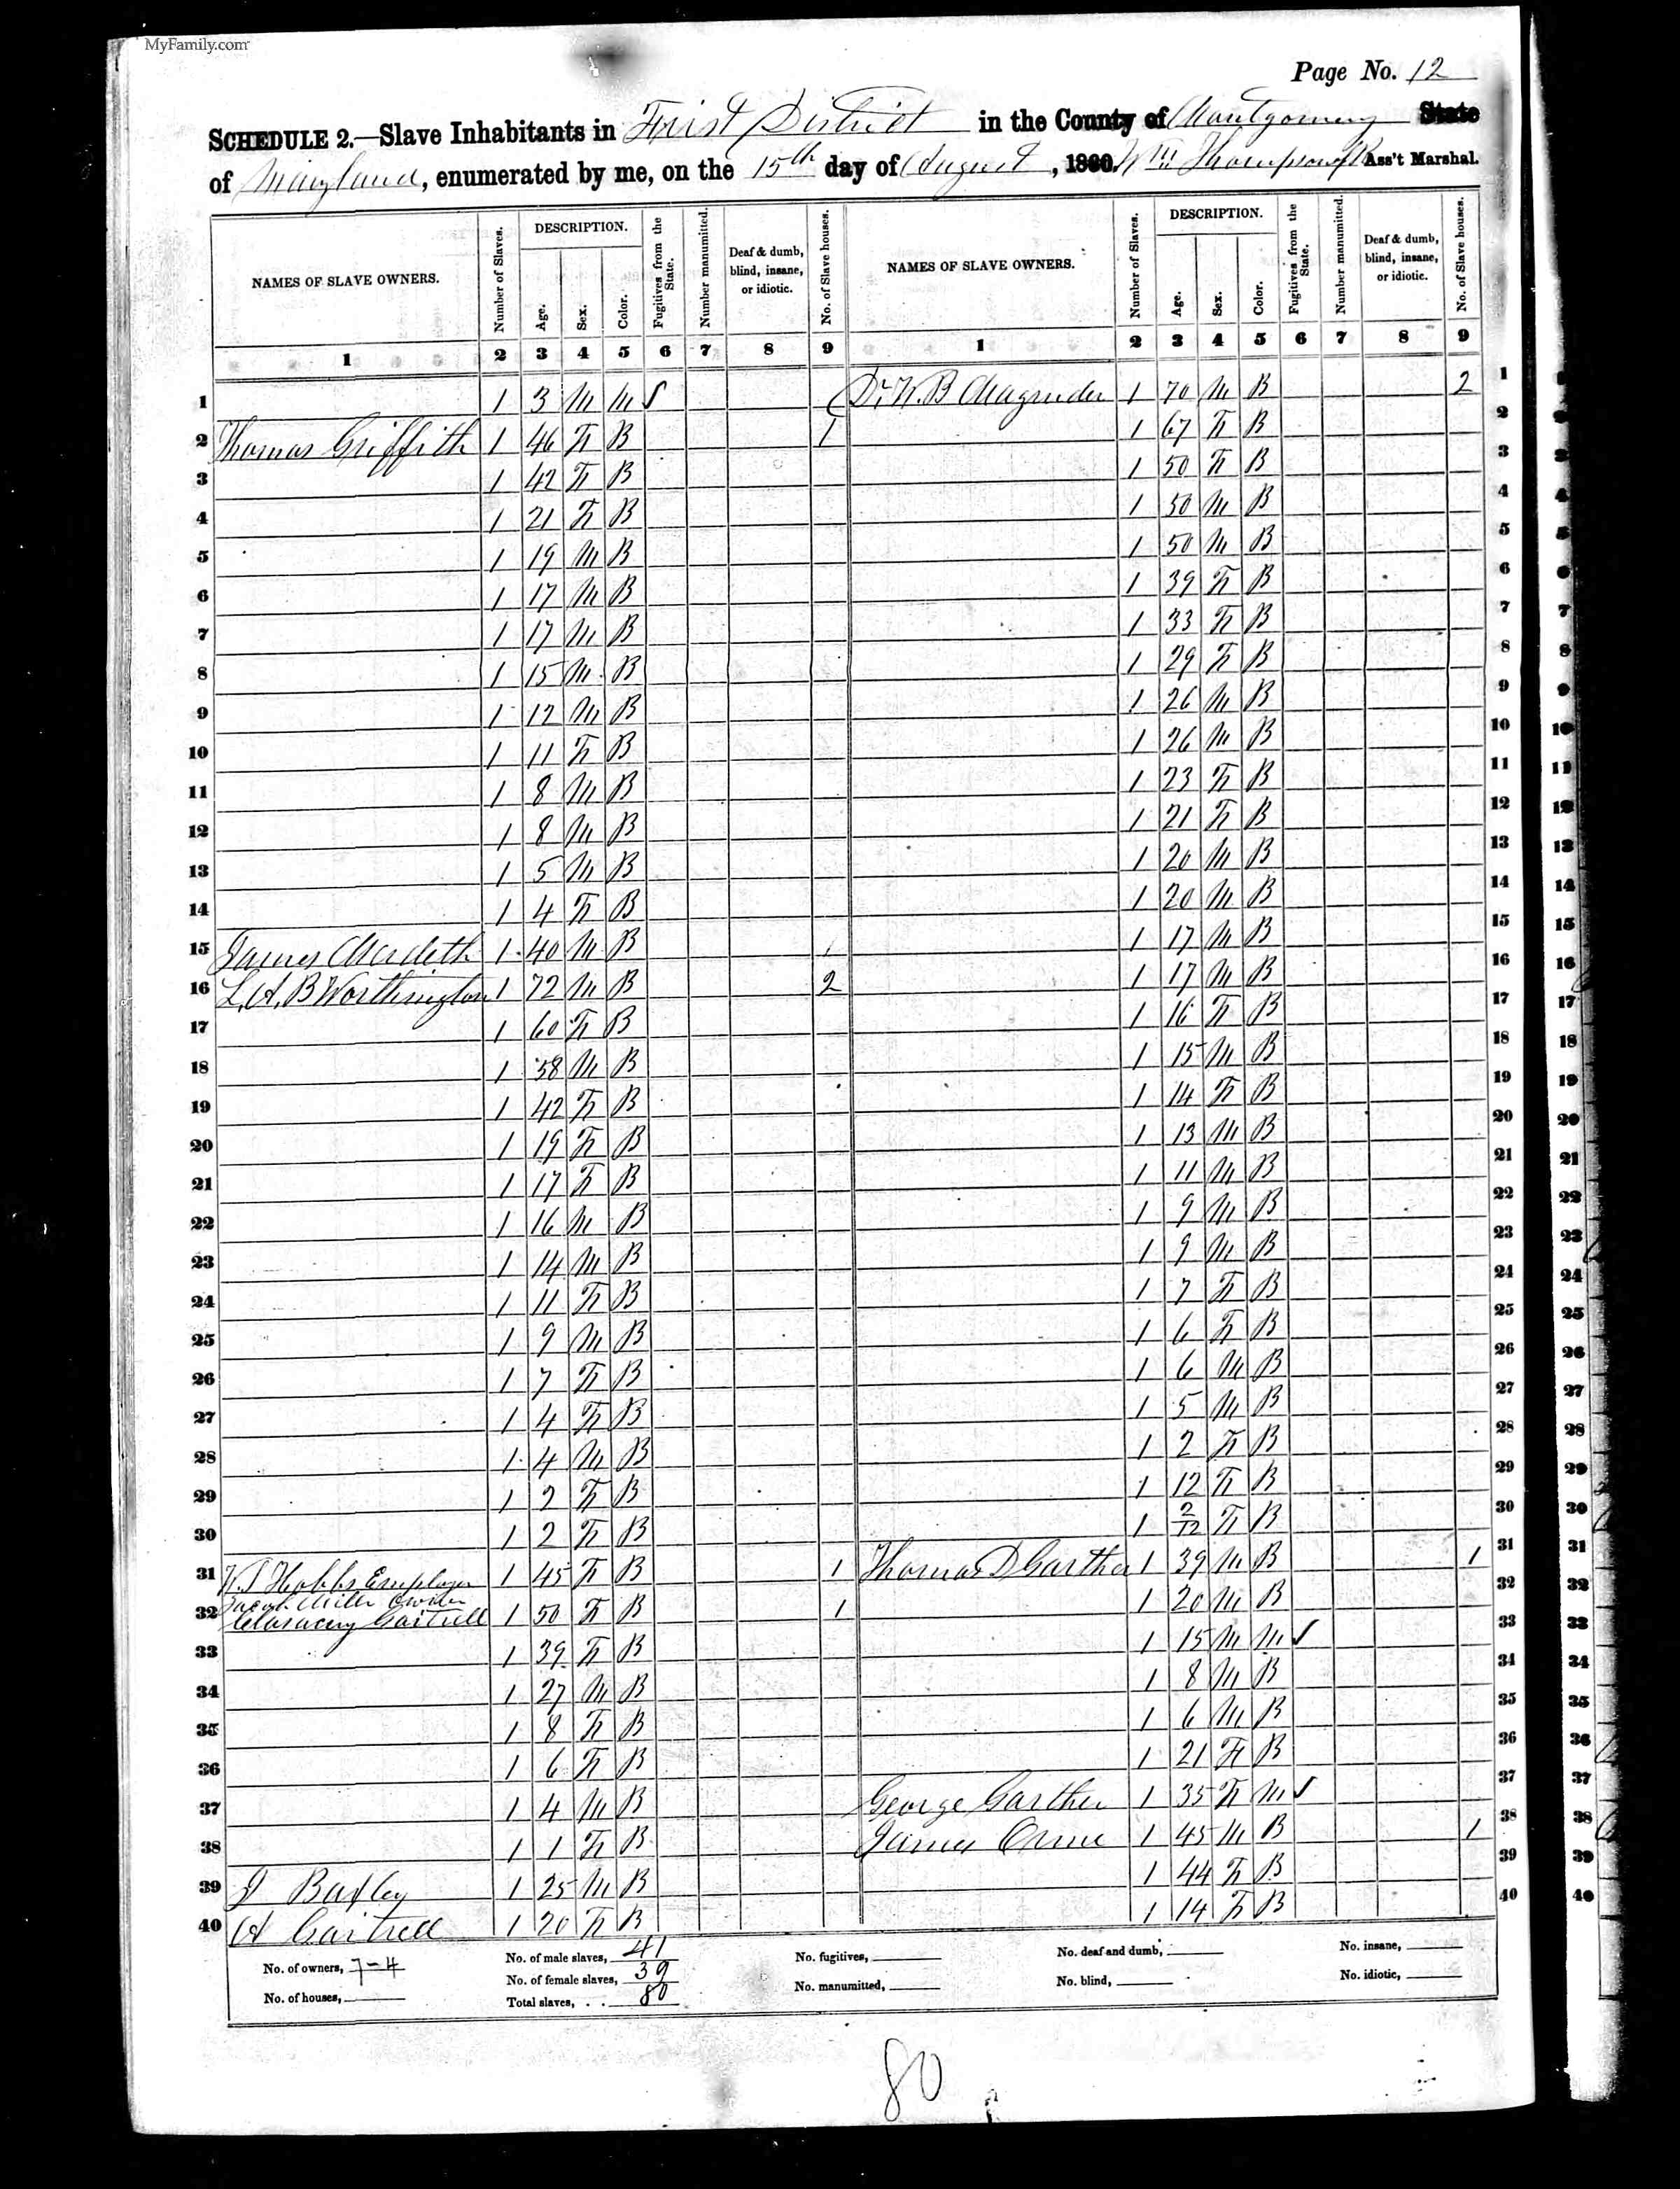 MyFamily.com
Page No. 12
SCHEDULE 2.—Slave Inhabitants in First District in the County of Montgomery State
of Maryland, enumerated by me, on the 15th day of August, 1860. Wm Thompson Ass't Marshal.
NAMES OF SLAVE OWNERS. Number of Slaves. DESCRIPTION. Age. Sex. Color. Fugitives from the State. Number manumitted. Deaf & dumb, blind, insane, or idiotic. No. of Slave houses. NAMES OF SLAVE OWNERS. Number of Slaves. DESCRIPTION. Age. Sex. Color. Fugitives from the State. Number manumitted. Deaf & dumb, blind, insane, or idiotic. No. of Slave houses.
1 2 3 4 5 6 7 8 9 1 2 3 4 5 6 7 8 9
1 1 3 M M Dr W. B Magruder 1 70 M B 2 1
2 Thomas Griffith 1 46 F B 1 1 67 F B 2
3 1 42 F B 1 50 F B 3
4 1 21 F B 1 50 M B 4
5 1 19 M B 1 50 M B 5
6 1 17 M B 1 39 F B 6
7 1 17 M B 1 33 F B 7
8 1 15 M B 1 29 F B 8
9 1 12 M B 1 26 M B 9
10 1 11 F B 1 26 M B 10
11 1 8 M B 1 23 F B 11
12 1 8 M B 1 21 F B 12
13 1 5 M B 1 20 M B 13
14 1 4 F B 1 20 M B 14
15 James 1 40 M B 1 1 17 M B 15
16 L. A. B Worthington 1 72 M B 2 1 17 M B 16
17 1 60 F B 1 16 F B 17
18 1 58 M B 1 15 M B 18
19 1 42 F B 1 14 F B 19
20 1 19 F B 1 13 M B 20
21 1 17 F B 1 11 M B 21
22 1 16 M B 1 9 M B 22
23 1 14 M B 1 9 M B 23
24 1 11 F B 1 7 F B 24
25 1 9 M B 1 6 F B 25
26 1 7 F B 1 6 M B 26
27 1 4 F B 1 5 M B 27
28 1 4 M B 1 2 F B 28
29 1 2 F B 1 12 F B 29
30 1 2 F B 1 2/12 F B 30
31 Hobbs Employer 1 45 F B 1 Thomas D Gaither 1 39 M B 1 31
Jacob Owner
32 Gartrell 1 50 F B 1 1 20 M B 32
33 1 39 F B 1 15 M M 33
34 1 27 M B 1 8 M B 34
35 1 8 F B 1 6 M B 35
36 1 6 F B 1 21 F B 36
37 1 4 M B George Gaither 1 35 F M 37
38 1 1 F B James Orme 1 45 M B 1 38
39 J Baxley 1 25 M B 1 44 F B 39
40 A Gartrell 1 20 F B 1 14 F B 40
No. of owners, 7-4 No. of male slaves, 41 No. fugitives, No. deaf and dumb, No. insane,
No. of female slaves, 39 No. manumitted, No. blind, No. idiotic,
No. of houses, Total slaves, 80
80